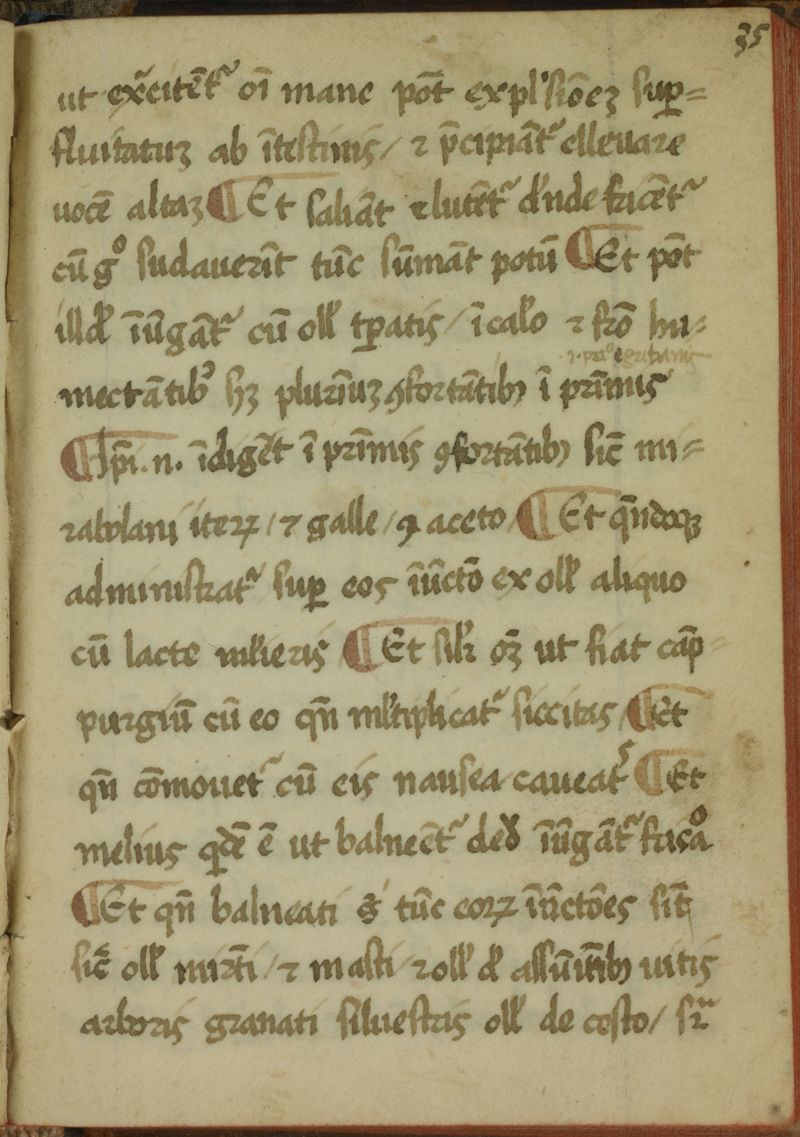 35
ut exc̄itēt᷑ oī mane pōt expl'siōeʒ sup̄=
fluitatuʒ ab ītestinis / ⁊ p̄cipiāt᷑ ellevare
vocē altaʒ ¶ Et saliāt ⁊ lutēt᷑ d'nde fricēt᷑
cū gͦ sudaverīt tūc sūmāt potū ¶ Et pōt
illd' īūgāt᷑ cū oll' tp̄atis / ī cal'o ⁊ fr̄o hu=
mectātibꝰ hʒ plurīuʒ ꝯfortātibꝫ ī prīmis
¶ ip̄i .n. īdigēt ī prīmis ꝯfortātibꝫ sic̄ mi=
rabolani iteꝝ / ⁊ galle / ꝯ aceto / ¶ Et qn̄doqꝫ
administrat᷑ sup̄ eos īūctō ex oll' aliquo
cū lacte ml'ieris ¶ Et sil'r oꝫ ut fiat cāp
purgiū cū eo qn̄ ml'tiplicat᷑ siccitas / ¶ Et
qn̄ cōmovet᷑ cū eis nausea caveat᷑ ¶ Et
melius qdē ē ut balneēt᷑ īūgāt᷑
¶ Et qn̄ balneati s̄t tūc eoꝝ īūctōes sīt
sic̄ oll' mirti / ⁊ masti / ⁊ oll' d' assūītibꝫ vitis
arboris granati silvestris oll' de costo / sr᷑